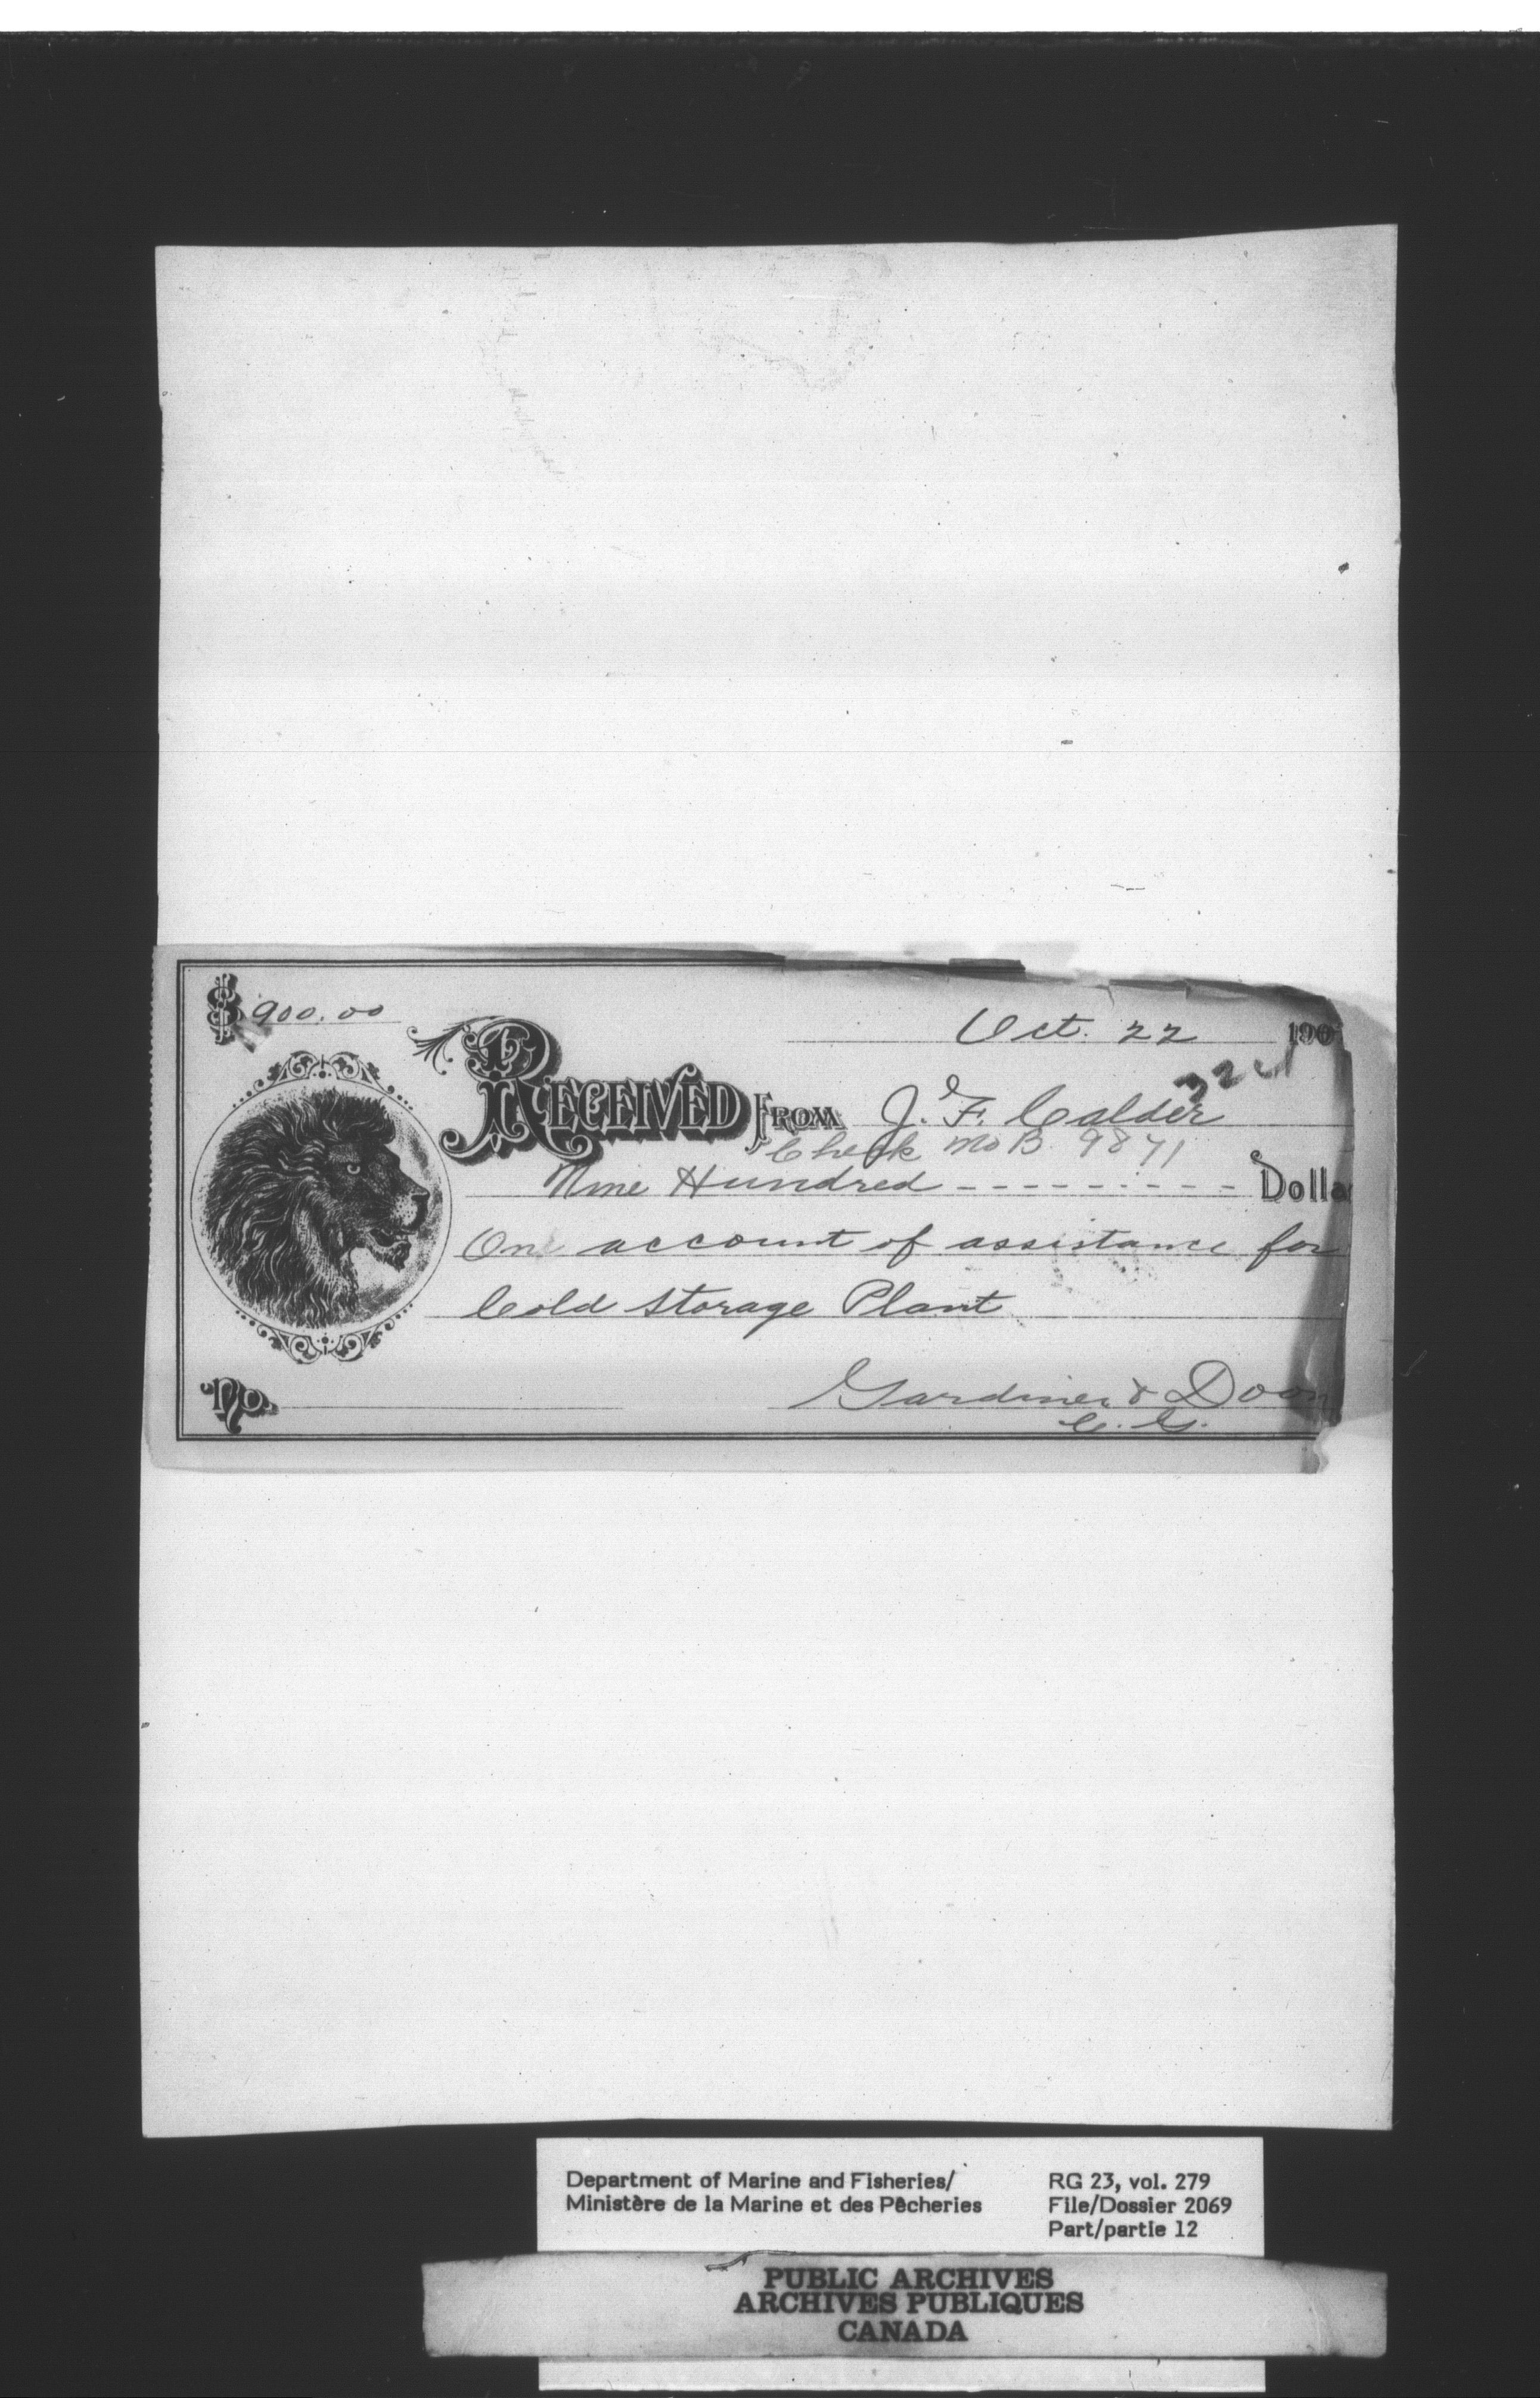 $ 900.00
Oct. 22 190
324
RECEIVED FROM J. F. Calder
Check No B 9871
Nine Hundred --------- Dolla
On account of assistance for
Cold Storage Plant
No.
Gardiner & Doon
C. G.
Department of Marine and Fisheries/
Ministère de la Marine et des Pêcheries
RG 23, vol. 279
File/Dossier 2069
Part/partie 12
PUBLIC ARCHIVES
ARCHIVES PUBLIQUES
CANADA